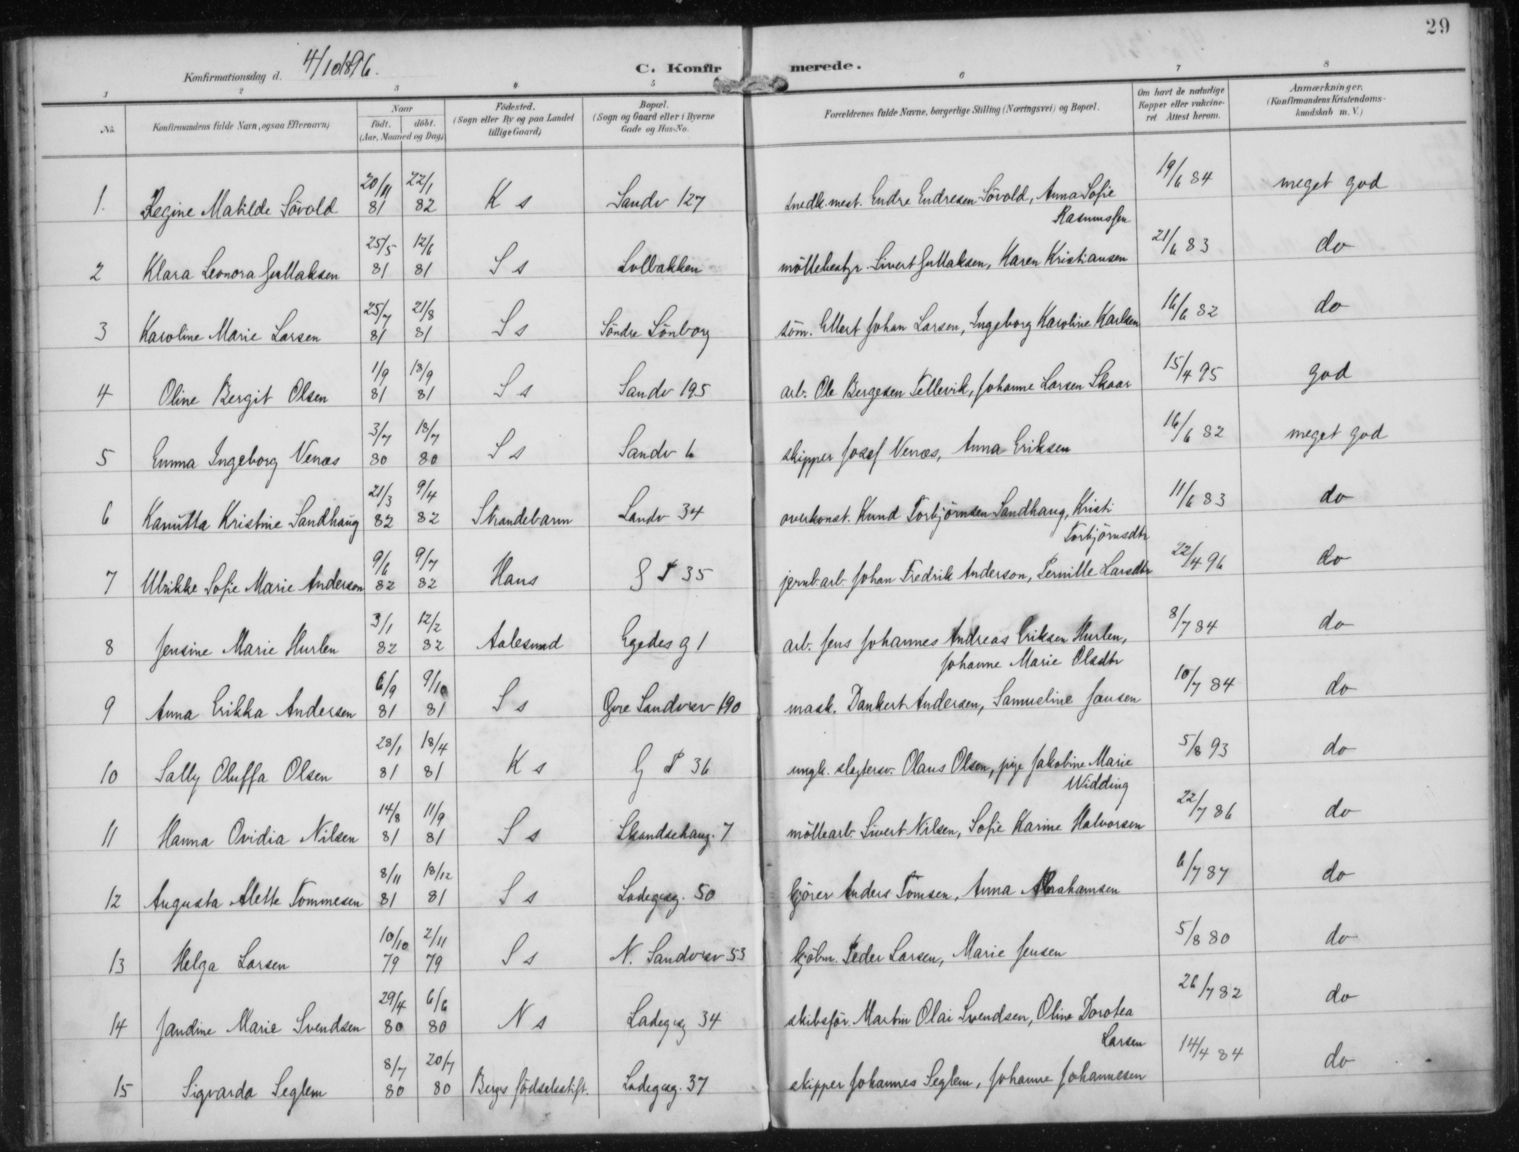 29
Konfirmationsdag d. 4/10 1896.
C. Konfirmerede.
1 2 3 4 5 6 7 8
№ Konfirmandens fulde Navn, (ogsaa Efternavn) Naar født. døbt. (Aar, Maaned og Dag) Fødested. (Sogn eller By og paa Landet tillige Gaard) Bopæl. (Sogn og Gaard eller i Byerne Gade og Hus-No. Forældrenes fulde Navne, borgerlige Stilling (Næringsvei) og Bopæl. Om havt de naturlige Kopper eller vakcineret Attest herom. Anmærkninger. (Konfirmandens Kristendomskundskab m. V.)
1. Regine Matilde Søvold 20/11 81 22/1 82 K s Sandv 127 snedk. mest. Endre Endresen Søvold, Anna Sofie Rasmussen 19/6 84 meget god
2 Klara Leonora Gullaksen 25/5 81 12/6 81 S s Solbakken møllebestyr. Sivert Gullaksen, Karen Kristiansen 21/6 83 do
3 Karoline Marie Larsen 25/7 81 21/8 81 S s Søndre Sønborg tøm. Ellert Johan Larsen, Ingeborg Karoline Karlsen 16/6 82 do
4 Oline Bergit Olsen 1/9 81 18/9 81 S s Sandv 195 arb. Ole Bergesen Tellevik, Johanne Larsen Skaar 15/4 95 god
5 Emma Ingeborg Venæs 3/7 80 18/7 80 S s Sandv 6 skipper Josef Venæs, Anna Eriksen 16/6 82 meget god
6 Kanutta Kristine Sandhaug 21/3 82 9/4 82 Strandebarm Sandv 34 overkonst. Knud Torbjørnsen Sandhaug, Kristi Torbjørnsdtr 11/6 83 do
7 Ulrikke Sofie Marie Anderson 9/6 82 9/7 82 Haus G P 35 jernb. arb. Johan Fredrik Anderson, Pernille Larsdtr 22/4 96 do
8 Jensine Marie Hurlen 3/1 82 12/2 82 Aalesund Egedes g 1 arb. Jens Johannes Andreas Eriksen Hurlen, Johanne Marie Olsdtr 8/7 84 do
9 Anna Erikka Andersen 6/9 81 9/10 81 S s Øvre Sandvsv 190 mask. Dankert Andersen, Samueline Jansen 10/7 84 do
10 Sally Oluffa Olsen 28/1 81 18/4 81 K s G P 36 ungk. slagtersv. Olaus Olsen, pige Jakobine Marie Widding 5/8 93 do
11 Hanna Ovidia Nilsen 14/8 81 11/9 81 S s Skandsehaug. 7 møllearb. Sivert Nilsen, Sofie Karine Halvorsen 22/7 86 do
12 Augusta Alette Tommesen 8/11 81 18/12 81 S s Ladegsg. 50 kjører Anders Tomsen, Anna Abrahamsen 6/7 87 do
13 Helga Larsen 10/10 79 2/11 79 S s N. Sandvsv 53 kjøbm. Peder Larsen, Marie Jensen 5/8 80 do
14 Jandine Marie Svendsen 29/4 80 6/6 80 N s Ladegsg 34 skibsfør. Martin Olai Svendsen, Oline Dorotea Larsen 26/7 82 do
15 Sigvarda Seglem 8/7 80 20/7 80 Bergs fødselsstift. Ladegsg. 37 skipper Johannes Seglem, Johanne Johannesen 14/4 84 do